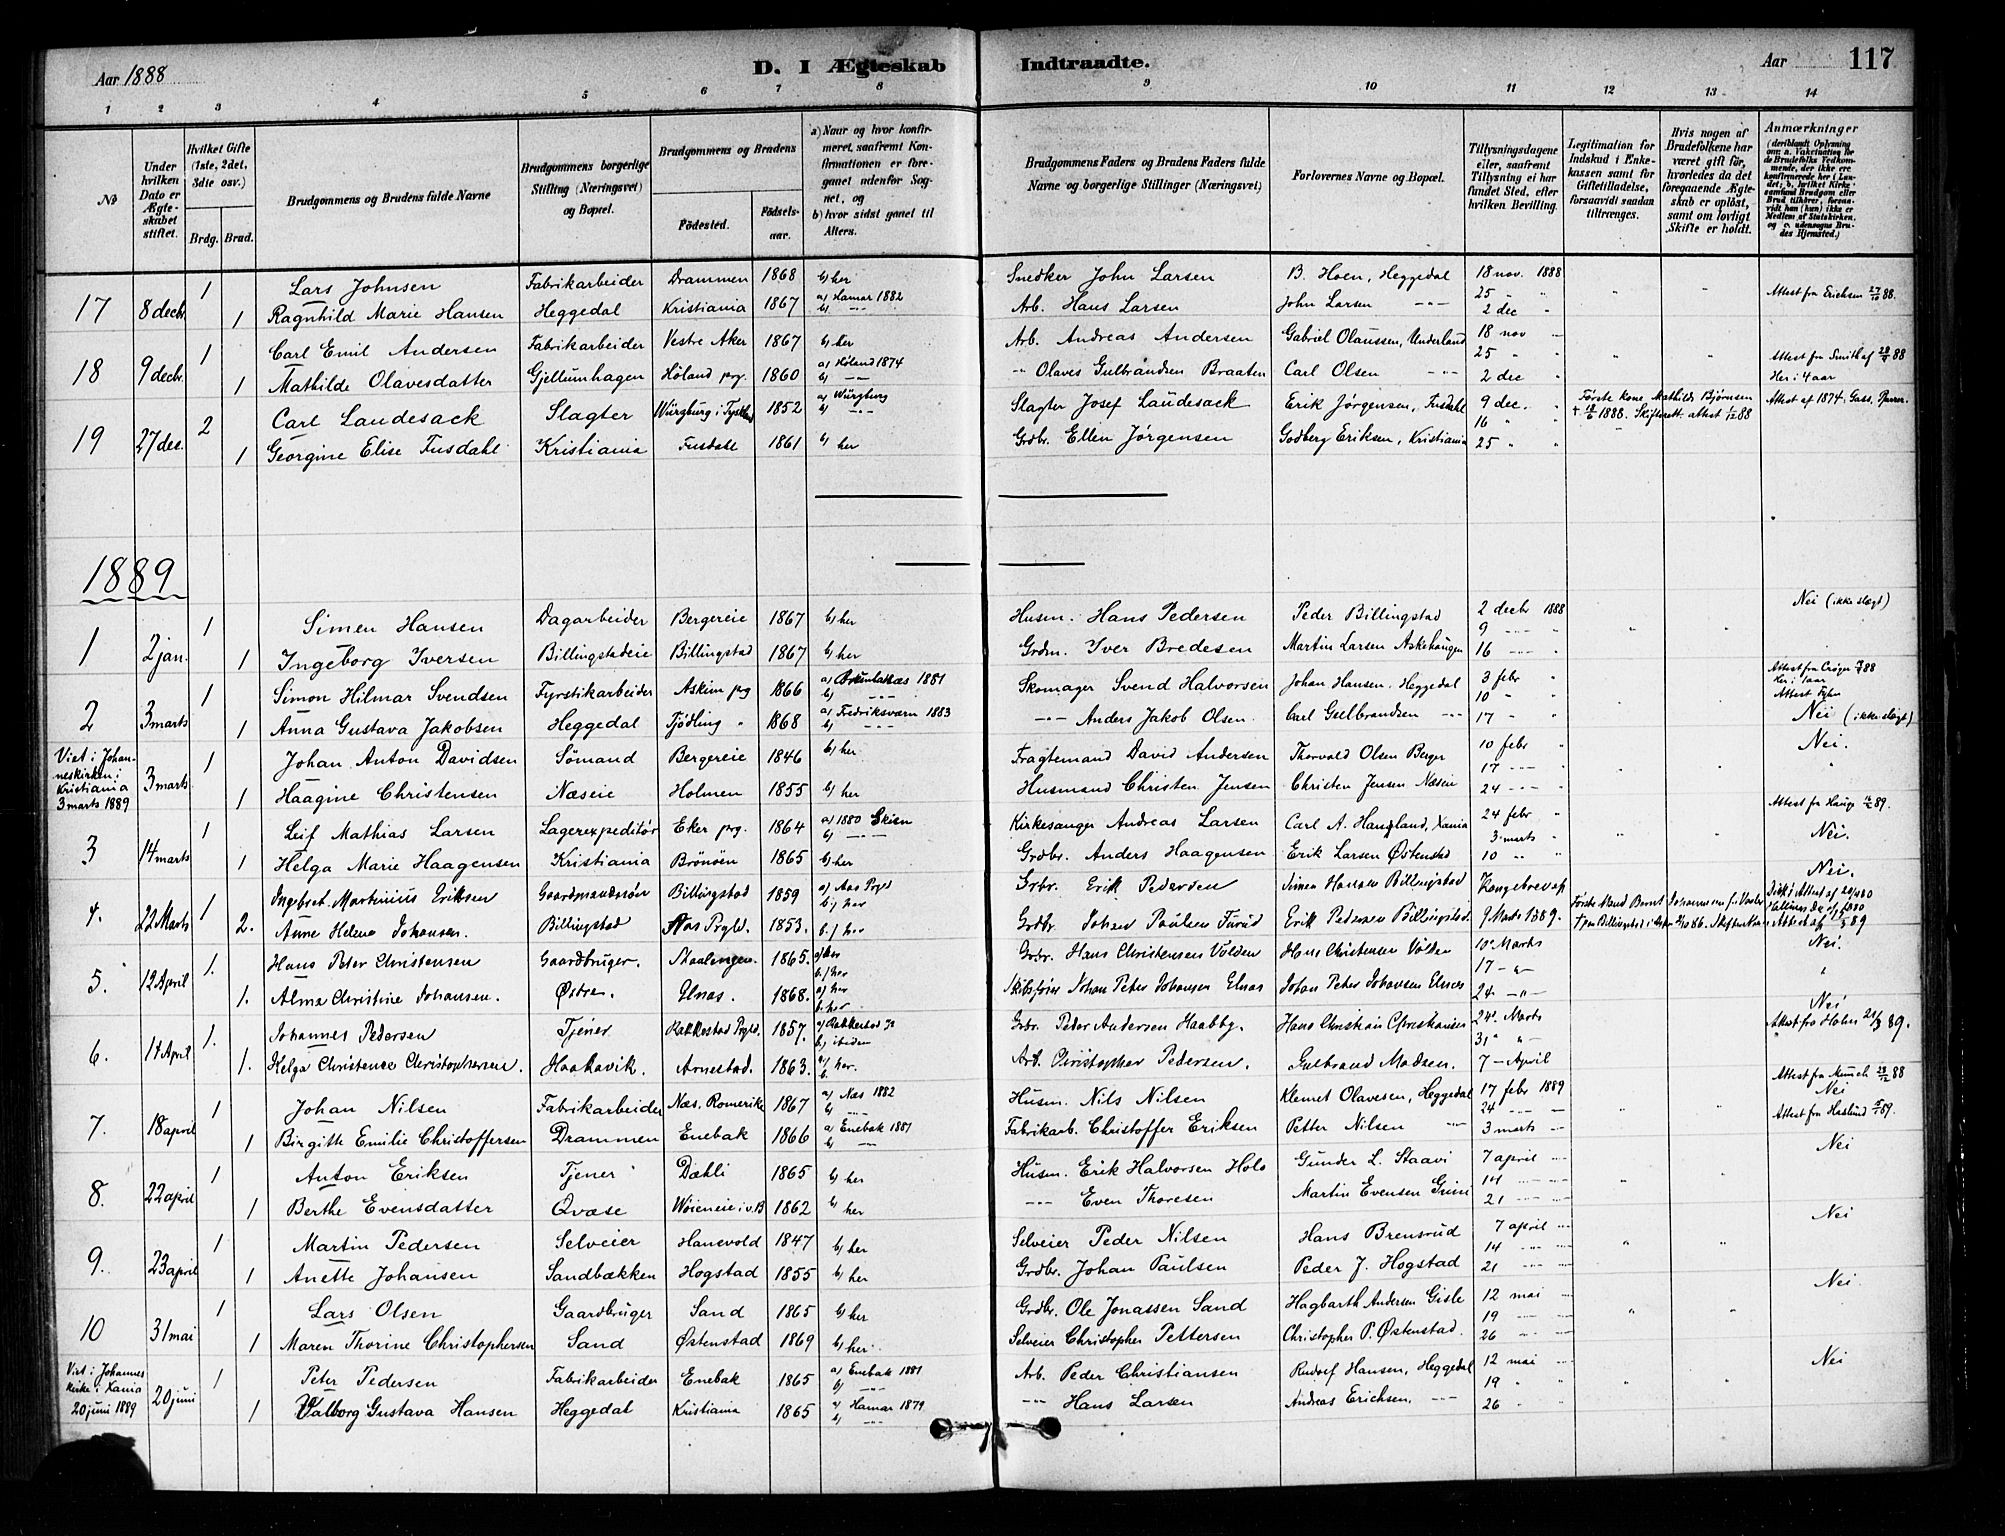 Aar 1888
D. I Ægteskab Indtraadte.
Aar 117
1 2 3 4 5 6 7 8 9 10 11 12 13 14
No
Under hvilken Dato er Ægteskabet stiftet.
Hvilket Gifte (1ste, 2det, 3die osv.)
Brdg. Brud.
Brudgommens og Brudens fulde Navne
Brudgommens borgerlige Stilling (Næringsvei) og Bopæl.
Brudgommens og Brudens
Fødested. Fødselsaar.
a) Naar og hvor konfirmeret, saafremt Konfirmationen er foregaaet udenfor Sognet, og
b) hvor sidst gaaet til Alters.
Brudgommens Faders og Brudens Faders fulde Navne og borgerlige Stillinger (Næringsvei)
Forlovernes Navne og Bopæl.
Tillysningsdagene eller, saafremt Tillysning ei har fundet Sted, efter hvilken Bevilling.
Legitimation for Indskud i Enkekassen samt for Giftetilladelse, forsaavidt saadan tiltrænges.
Hvis nogen af Brudefolkene har været gift før, hvorledes da det foregaaende Ægteskab er opløst, samt om lovligt Skifte er holdt.
Anmærkninger
17 8 decbr. 1 Lars Johnsen Fabrikarbeider Drammen 1868 b) her Snedker John Larsen B. Hoen, Heggedal 18 nov. 1888
1 Ragnhild Marie Hansen Heggedal Kristiania 1867 a) Hamar 1882 b) -"- Arb. Hans Larsen John Larsen -"- 25 " " 2 dec " Attest fra Erichsen 27/10 88.
18 9 decbr. 1 Carl Emil Andersen Fabrikarbeider Vestre Aker 1867 b) her Arb. Andreas Andersen Gabriel Olaussen, Underlund 18 nov
1 Mathilde Olavesdatter Gjellumhagen Høland prg. 1860 a) Høland 1874 b) -"- " Olaves Gulbrandsen Braaten Carl Olsen -"- 25 " " 2 dec " Attest fra Smith af 88 Her i 4 aar
19 27 dec. 2 Carl Laudesack Slagter Würzburg i Tyskl 1852 a) Würzburg b) -"- Slagter Josef Laudesack Erik Jørgensen, Fusdahl 9 dec. Første kone Mathilde Bjørnsen 1888. Skifterett. attest 1/12 88 Attest af 1874.
1 Georgine Elise Fusdahl Kristiania Fusdahl 1861 b) her Grdbr. Ellen Jørgensen Godberg Eriksen, Kristiania 16 " 25 " "
1889
1 2 jan. 1 Simen Hansen Dagarbeider Bergereie 1867 b) her Husm. Hans Pedersen Peder Billingstad 2 decbr 1888 Nei (ikke slegt)
1 Ingeborg Iversen Billingstadeie Billingstad 1867 b) her Grdm. Iver Bredesen Martin Larsen Askehaugen 9 -"- " 16 -"- "
2 3 marts 1 Simon Hilmar Svendsen Fyrstikarbeider Askim prg 1866 1881 b) -"- Skomager Svend Halvorsen Johan Hansen, Heggedal 3 febr " Her i 1 aar
1 Anna Gustava Jakobsen Heggedal Tjødling " 1868 a) Fredriksværn 1883 b) -"- -"- Anders Jakob Olsen. Carl Gulbrandsen -"- 10 " 17 " " Nei (ikke slegt)
Viet i Johanneskirken i Kristiania 3 marts 1889 3 marts 1 Johan Anton Davidsen Sømand Bergereie 1846 b) her Fragtemand David Andersen Thorvald Olsen Berger 10 febr " Nei.
1 Haagine Christensen Næseie Holmen 1855 b) her Husmand Christen Jensen Christen Jensen Næseie 17 -"- " 24 -"- "
3 14 marts 1 Leif Mathias Larsen Lagerexpeditør Eker prg. 1864 a) 1880 Skien b) -"- Kirkesanger Andreas Larsen Carl A. Haugland, Xania 24 febr " Attest fra Hauge 89.
1 Helga Marie Haagensen Kristiania Brønøen 1865 b) her Grdbr. Anders Haagensen Erik Larsen Østenstad 3 marts " 10 " " Nei.
4. 22 Marts 1 Ingebret Martinius Eriksen Gaardmandssøn Billingstad 1859 a) Aas Prgld b) her Grbr. Erik Pedersen Simen Hansen Billingstad Kongebrev af Første Mand Bernt Johannesen Nei.
2. Anne Helene Johansen. Billingstad Aas Prgld. 1853. b.) her Grdbr. Johan Paulsen Furud Erik Pedersen Billingstad 9 Marts 1889.
5. 12 April 1. Hans Peter Christensen Gaardbruger. 1865. a) her b.) her Grbr. Hans Christensen Volden Hans Christensen Volden 10 Marts Nei.
1. Alma Christine Johansen. Østre. Elnæs. 1868. a) her b. her Skibsfører Johan Peter Johansen Elnæs Johan Peter Johansen Elnæs 17 -"- 24 -"-
6. 14 April 1. Johannes Pedersen Tjener Rakkestad Prgld. 1857. a) Rakkestad b) ibidem Grbr. Peder Andersen Haabby. Hans Christian Christiansen 24 Marts Nei
1. Helga Christence Christophersen. Haakavik. Arnestad. 1863. b. her. Arb. Christopher Pedersen. Gulbrand Madsen. 31 " " 7 - April Attest fra Holm 89.
7. 18 april 1 Johan Nilsen Fabrikarbeider Næs, Romerike 1867 a) Næs 1882 b) -"- Husm. Nils Nilsen Klemet Olavesen, Heggedal 17 febr 1889 Attest fra Munch 88 Nei
1 Birgitte Emilie Christoffersen Drammen Enebak 1866 a) Enebak 1881 b) -"- Fabrikarb. Christoffer Eriksen Petter Nilsen -"- 24 -"- 3 marts " Attest fra Haslund 89.
8. 22 april 1 Anton Eriksen Tjener Dæhli 1865 b) her Husm. Erik Halvorsen Holo Gunder L. Staavi 7 april Nei
1 Berthe Evensdatter Qvæse Wøieneie i v.B 1862 b) her -"- Even Thoresen Martin Evensen Grini 14 21
9. 23 april 1 Martin Pedersen Selveier Hanevold 1847 b) her Selveier Peder Nilsen Hans Brensrud 7 april Nei
1 Anette Johansen Sandbækken Hogstad 1855 b) her Grdbr. Johan Paulsen Peder J. Hogstad 14 21
10 31 mai 1 Lars Olsen Gaardbruger Sand 1865 b) her Grdbr. Ole Jonassen Sand Hagbarth Andersen Gisle 12 mai Nei
1 Maren Thorine Christophersen Sand Østenstad 1869 b) her. Selveier Christopher Pettersen Christopher P. Østenstad. 19 26
Viet i Johannes kirke i Xania 20 juni 1889 20 juni 1 Peter Pedersen Fabrikarbeider Enebak 1865 a) Enebak 1881 b) -"- Arb. Peder Christiansen Rudolf Hansen, Heggedal 12 mai Nei
1 Valborg Gustava Hansen Heggedal Kristiania 1865 a) Hamar 1879 b) -"- -"- Hans Larsen Andreas Erichsen. -"- 19 26